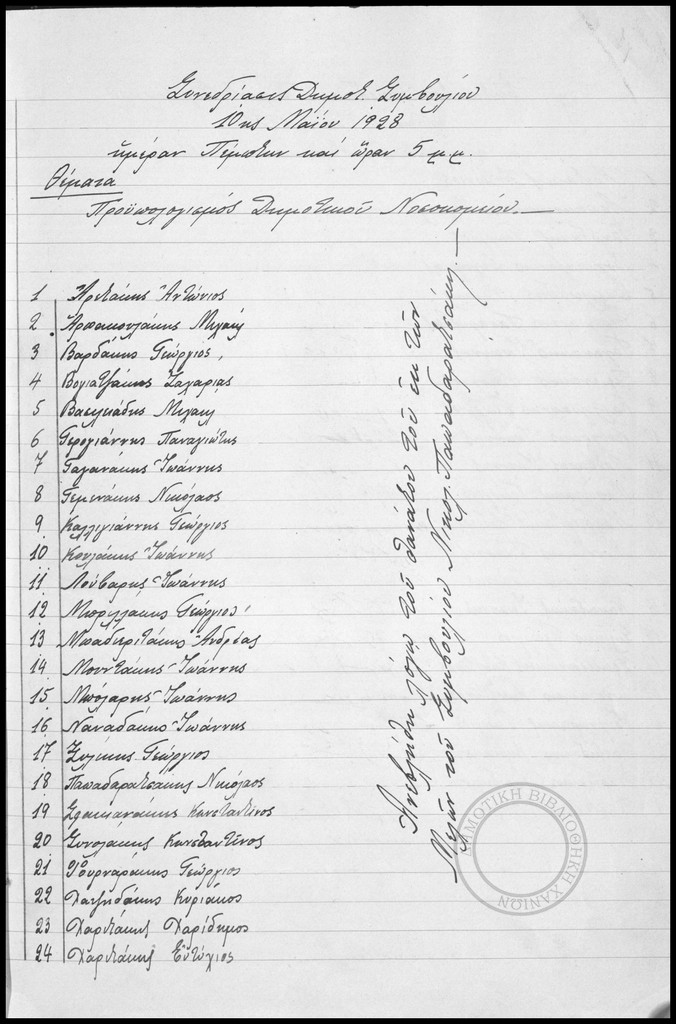 Συνεδρίασις Δημοτ. Συμβουλίου
10ης Μαΐου 1928
ἡμέραν Πέμπτην καί ὥραν 5 μ.μ.
Θέματα
Προϋπολογισμός Δημοτικοῦ Νοσοκομείου.—
1 Ἀρετάκης Ἀντώνιος
2 Ἀρπακουλάκης Μιχαήλ
3 Βαρδάκης Γεώργιος
4 Βογιατζάκης Ζαχαρίας
5 Βασιλειάδης Μιχαήλ
6 Γερογιάννης Παναγιώτης
7 Γαγανάκης Ἰωάννης
8 Γεμενάκης Νικόλαος
9 Καλλιγιάννης Γεώργιος
10 Κουλάκης Ἰωάννης
11 Λούβαρης Ἰωάννης
12 Μπριλλάκης Γεώργιος
13 Μπαδιεριτάκης Ἀνδρέας
14 Μουντάκης Ἰωάννης
15 Μπόλαρης Ἰωάννης
16 Ναναδάκης Ἰωάννης
17 Γεώργιος
18 Παπαδαρατσάκης Νικόλαος
19 Κωνσταντῖνος
20 Συνολάκης Κωνσταντῖνος
21 Φουρναράκης Γεώργιος
22 Χατζηδάκης Κυριάκος
23 Χαριτάκης Χαρίδημος
24 Χαριτάκης Εὐτύχιος
Ἀνεβλήθη λόγῳ τοῦ θανάτου τοῦ ἐκ τῶν
Μελῶν τοῦ Συμβουλίου Νικολ. Παπαδαρατσάκη.—
ΔΗΜΟΤΙΚΗ ΒΙΒΛΙΟΘΗΚΗ ΧΑΝΙΩΝ